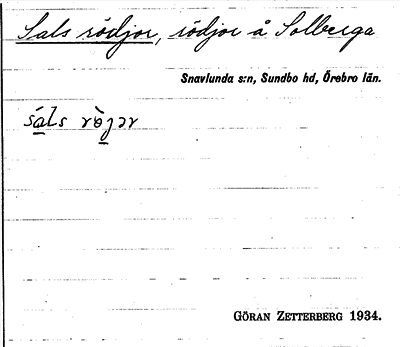 Sals rödjor, rödjor å Solberga
Snavlunda s:n, Sundbo hd, Örebro län.
GÖRAN ZETTERBERG 1934.